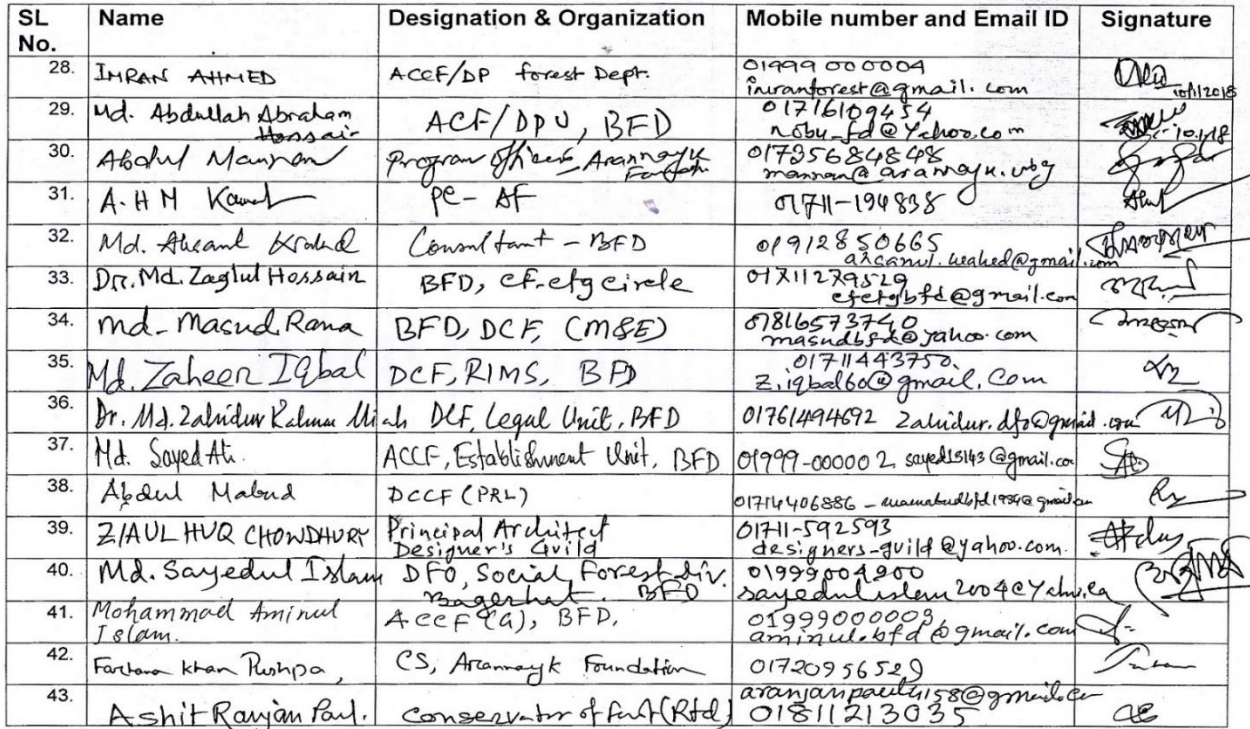 SL No. Name Designation & Organization Mobile number and Email ID Signature
28. IMRAN AHMED ACCF/DP forest Dept. 01999 000004
imranforest@gmail.com 10/1/2018
29. Md. Abdullah Abraham ACF/DPU, BFD 01716109454
Hossain nobu_fd@Yahoo.com 10.1.18
30. Abdul Mannan Program Officer, Arannayk 01735684848
mannan@arannayk.org
31. A.H M PC- AF 01711-194838
32. Md. Consultant - BFD 01912850665
33. Dr. Md. Zaglul Hossain BFD, CF-ctg circle 01711279529
cfctgbfd@gmail.com
34. md. Masud Rana BFD, DCF, (M&E) 01816573740
masudbfd@yahoo.com
35. Md. Zaheer IQbal DCF, RIMS, BFD 01711443750.
z.iqbal60@gmail.com
36. Dr. Md. Zahidur Miah DCF, Legal Unit, BFD 01761494692 Zahidur.dfo@gmail.com
37. Md. Sayed Ali. ACCF, Establishment Unit, BFD 01999-000002 sayed15143@gmail.co
38. Abdul Mabud DCCF (PRL) 01714406886
39. ZIAUL HUQ CHOWDHURY Principal Architect 01711-592593
Designer's Guild designers-guild@yahoo.com.
40. Md. Sayedul Islam DFO, Social Forest div. 01999004900
Bagerhat. BFD sayedulislam2004@Yahoo.ca
41. Mohammad Aminul ACCF (a), BFD. 01999000003,
Islam. aminul.bfd@gmail.com
42. Farhana Khan Pushpa, CS, Arannayk Foundation 01720956529
43. aranjanpaul4158@gmail.com
Ashit Ranjan Paul. Conservator of (Rtd) 01811213035